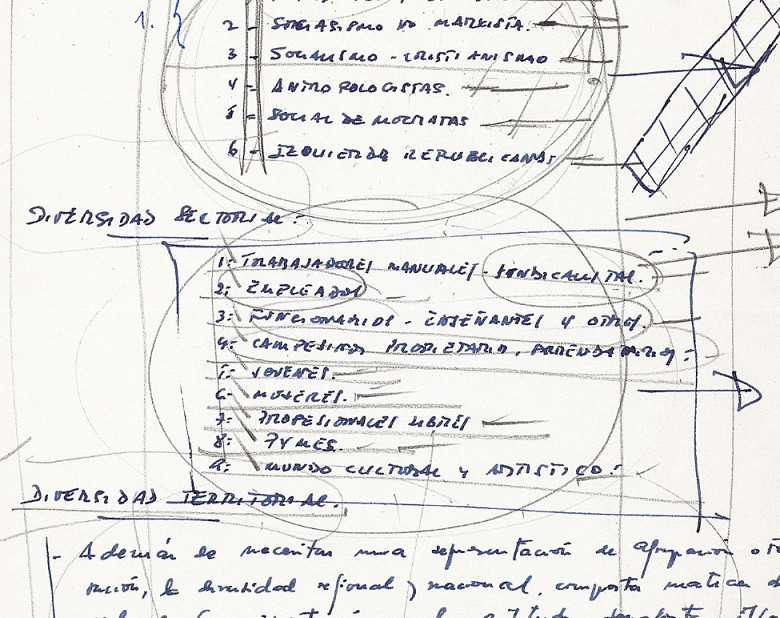 1.
2 - SOCIALISMO NO MARXISTA.
3 - SOCIALISMO - CRISTIANISMO
4 - ANTROPOLOGISTAS.
5 - SOCIAL DEMOCRATAS
6 - IZQUIERDA REPUBLICANA
DIVERSIDAD SECTORIAL:
1: TRABAJADORES MANUALES - SINDICALISTAS.
2: EMPLEADOS
3: FUNCIONARIOS - ENSEÑANTES Y OTROS.
4: CAMPESINOS PROPIETARIOS, ARRENDATARIOS:
5: JOVENES.
6- MUJERES.
7: PROFESIONALES LIBRES
8: PYMES.
9: MUNDO CULTURAL Y ARTISTICO:
DIVERSIDAD TERRITORIAL.
- Además se necesitan una representación de agrupación
la diversidad regional y nacional, comporta matices